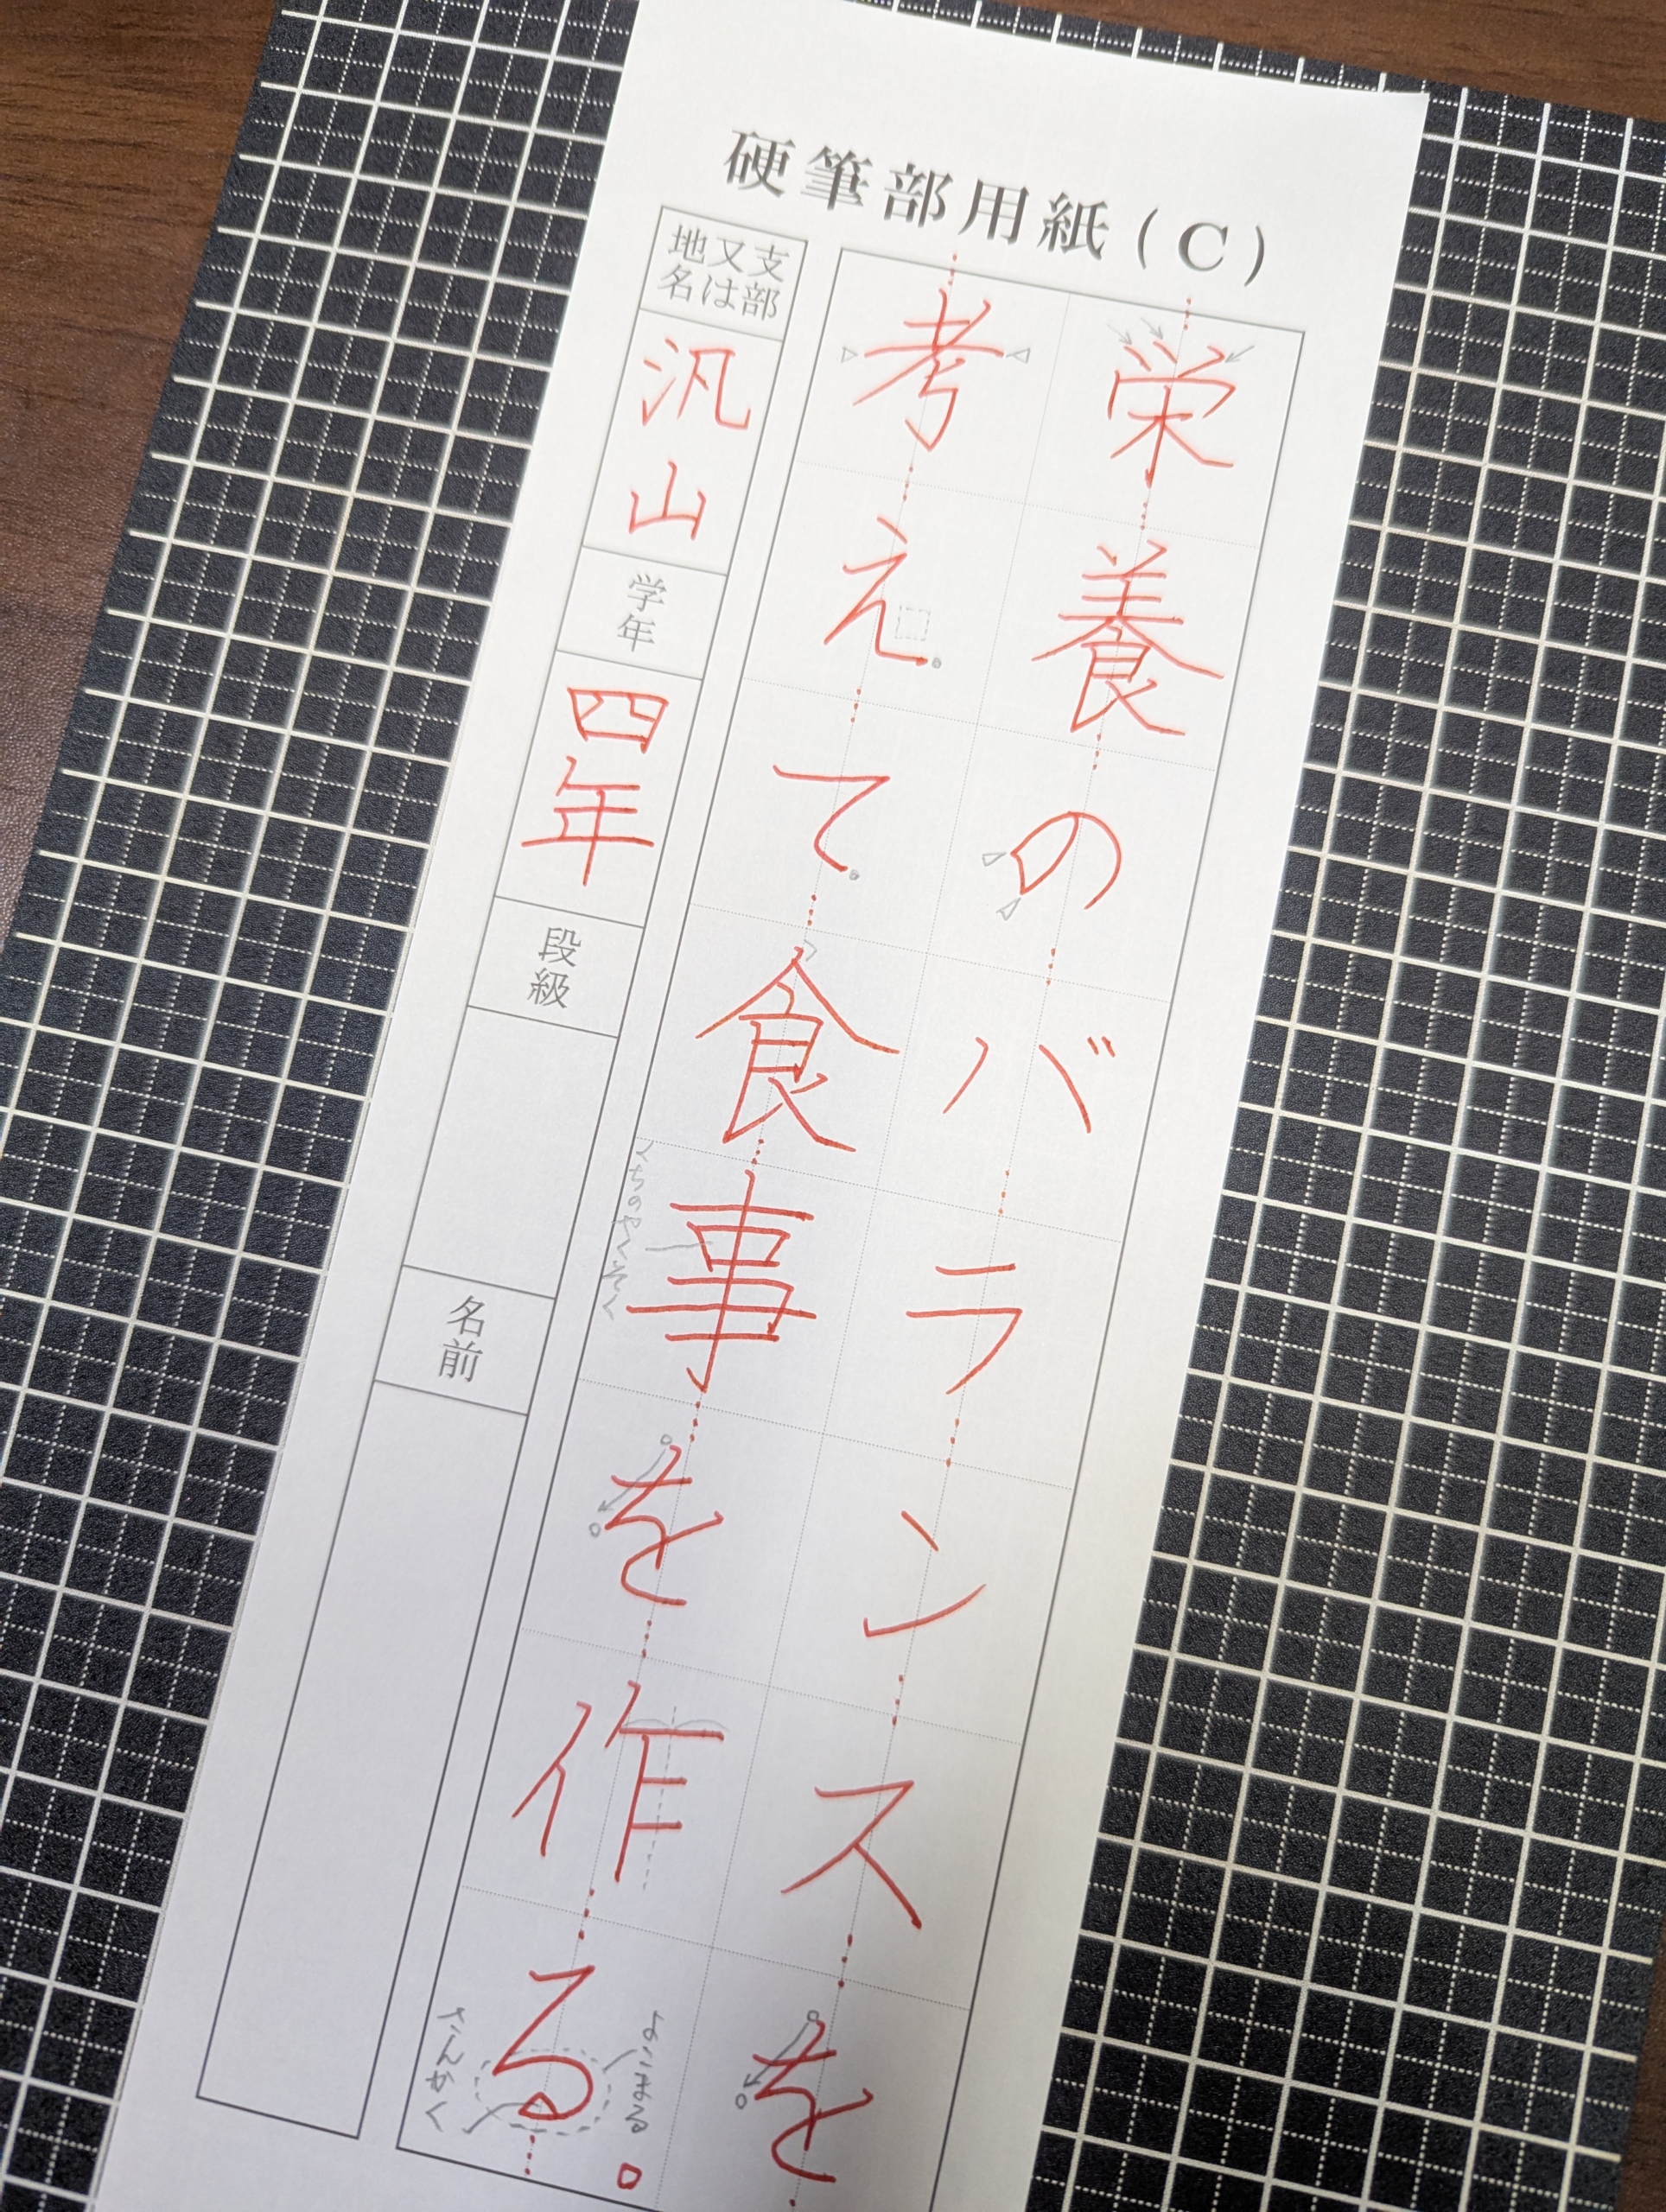 硬筆部用紙(C)
栄養のバランスを
考えて食事を作る。
くちのやくそく
よこまる
さんかく
支部
又は
地名
汎山
学年
四年
段級
名前